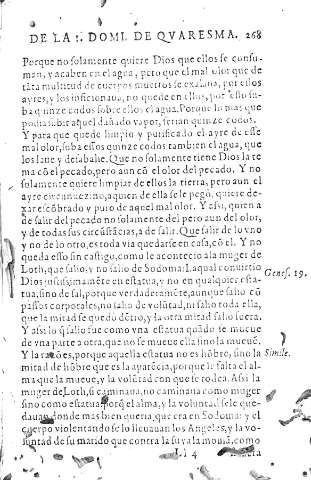 DE LA 1. DOMI. DE QVARESMA. 268
Porque no solamente quiere Dios que ellos se consu-
man, y acaben en el agua, pero que el mal olor que de
tãta multitud de cuerpos muertos se exalaua, por essos
ayres, y los inficionaua, no quede en ellos, por esso su-
ba quinze codos sobre ellos el agua. Porque lo mas que
podia subir aquel dañado vapor, serian quinze codos.
Y para que quede limpio y purificado el ayre de esse
mal olor, suba essos quinze codos tambien el agua, que
los laue y desabahe. Que no solamente tiene Dios la te
ma cõ el pecado, pero aun cõ el olor del pecado. Y no
solamente quiere limpiar de ellos la tierra, pero aun el
ayre circunuezino, a quien de ella se le pegó, quiere de-
xar escõbrado y puro de aquel mal olor. Y assi, quien a
de salir del pecado no solamente del pero aun del olor,
y de todas sus circũstãcias, a de salir. Que salir de lo vno
y no de lo otro, es toda via quedarse en casa, cõ el. Y no
queda esso sin castigo, como le acontecio a la muger de
Loth, que salio, y no salio de Sodoma: La qual conuirtio
Dios justissimamẽte en estatua, y no en qualquier esta-
tua, sino de sal, porque verdaderamẽte, aunque salio cõ
passos corporales, no salio de volũtad, ni salio toda ella,
que la mitad se quedó dẽtro, y la otra mitad salio fuera.
Y assi lo q̃ salio fue como vna estatua quãdo se mueue
de vna parte a otra, que no se mueue ella sino la mueuẽ.
Y la razõ es, porque aquella estatua no es hõbre, sino la
mitad de hõbre que es la aparẽcia, porque le falta el al-
ma que la mueue, y la volũtad con que se rodea. Assi la
muger de Loth, si caminaua, no caminaua como muger
sino como estatua: porq̃ el alma, y la voluntad se le que-
dauan donde mas bien queria, que era en Sodoma: y el
cuerpo violentandose lo lleuauan los Angeles, y la vo-
luntad de su marido que contra la suya la mouia, como
Genes. 19.
Simile.
Ll 4